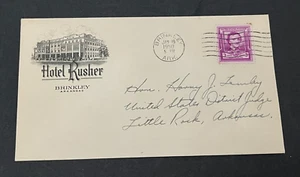 Hotel Rusher
BRINKLEY
ARKANSAS
BRINKLEY
ARK.
Hon. Harry J. Lemley
United States District Judge
Little Rock, Arkansas.